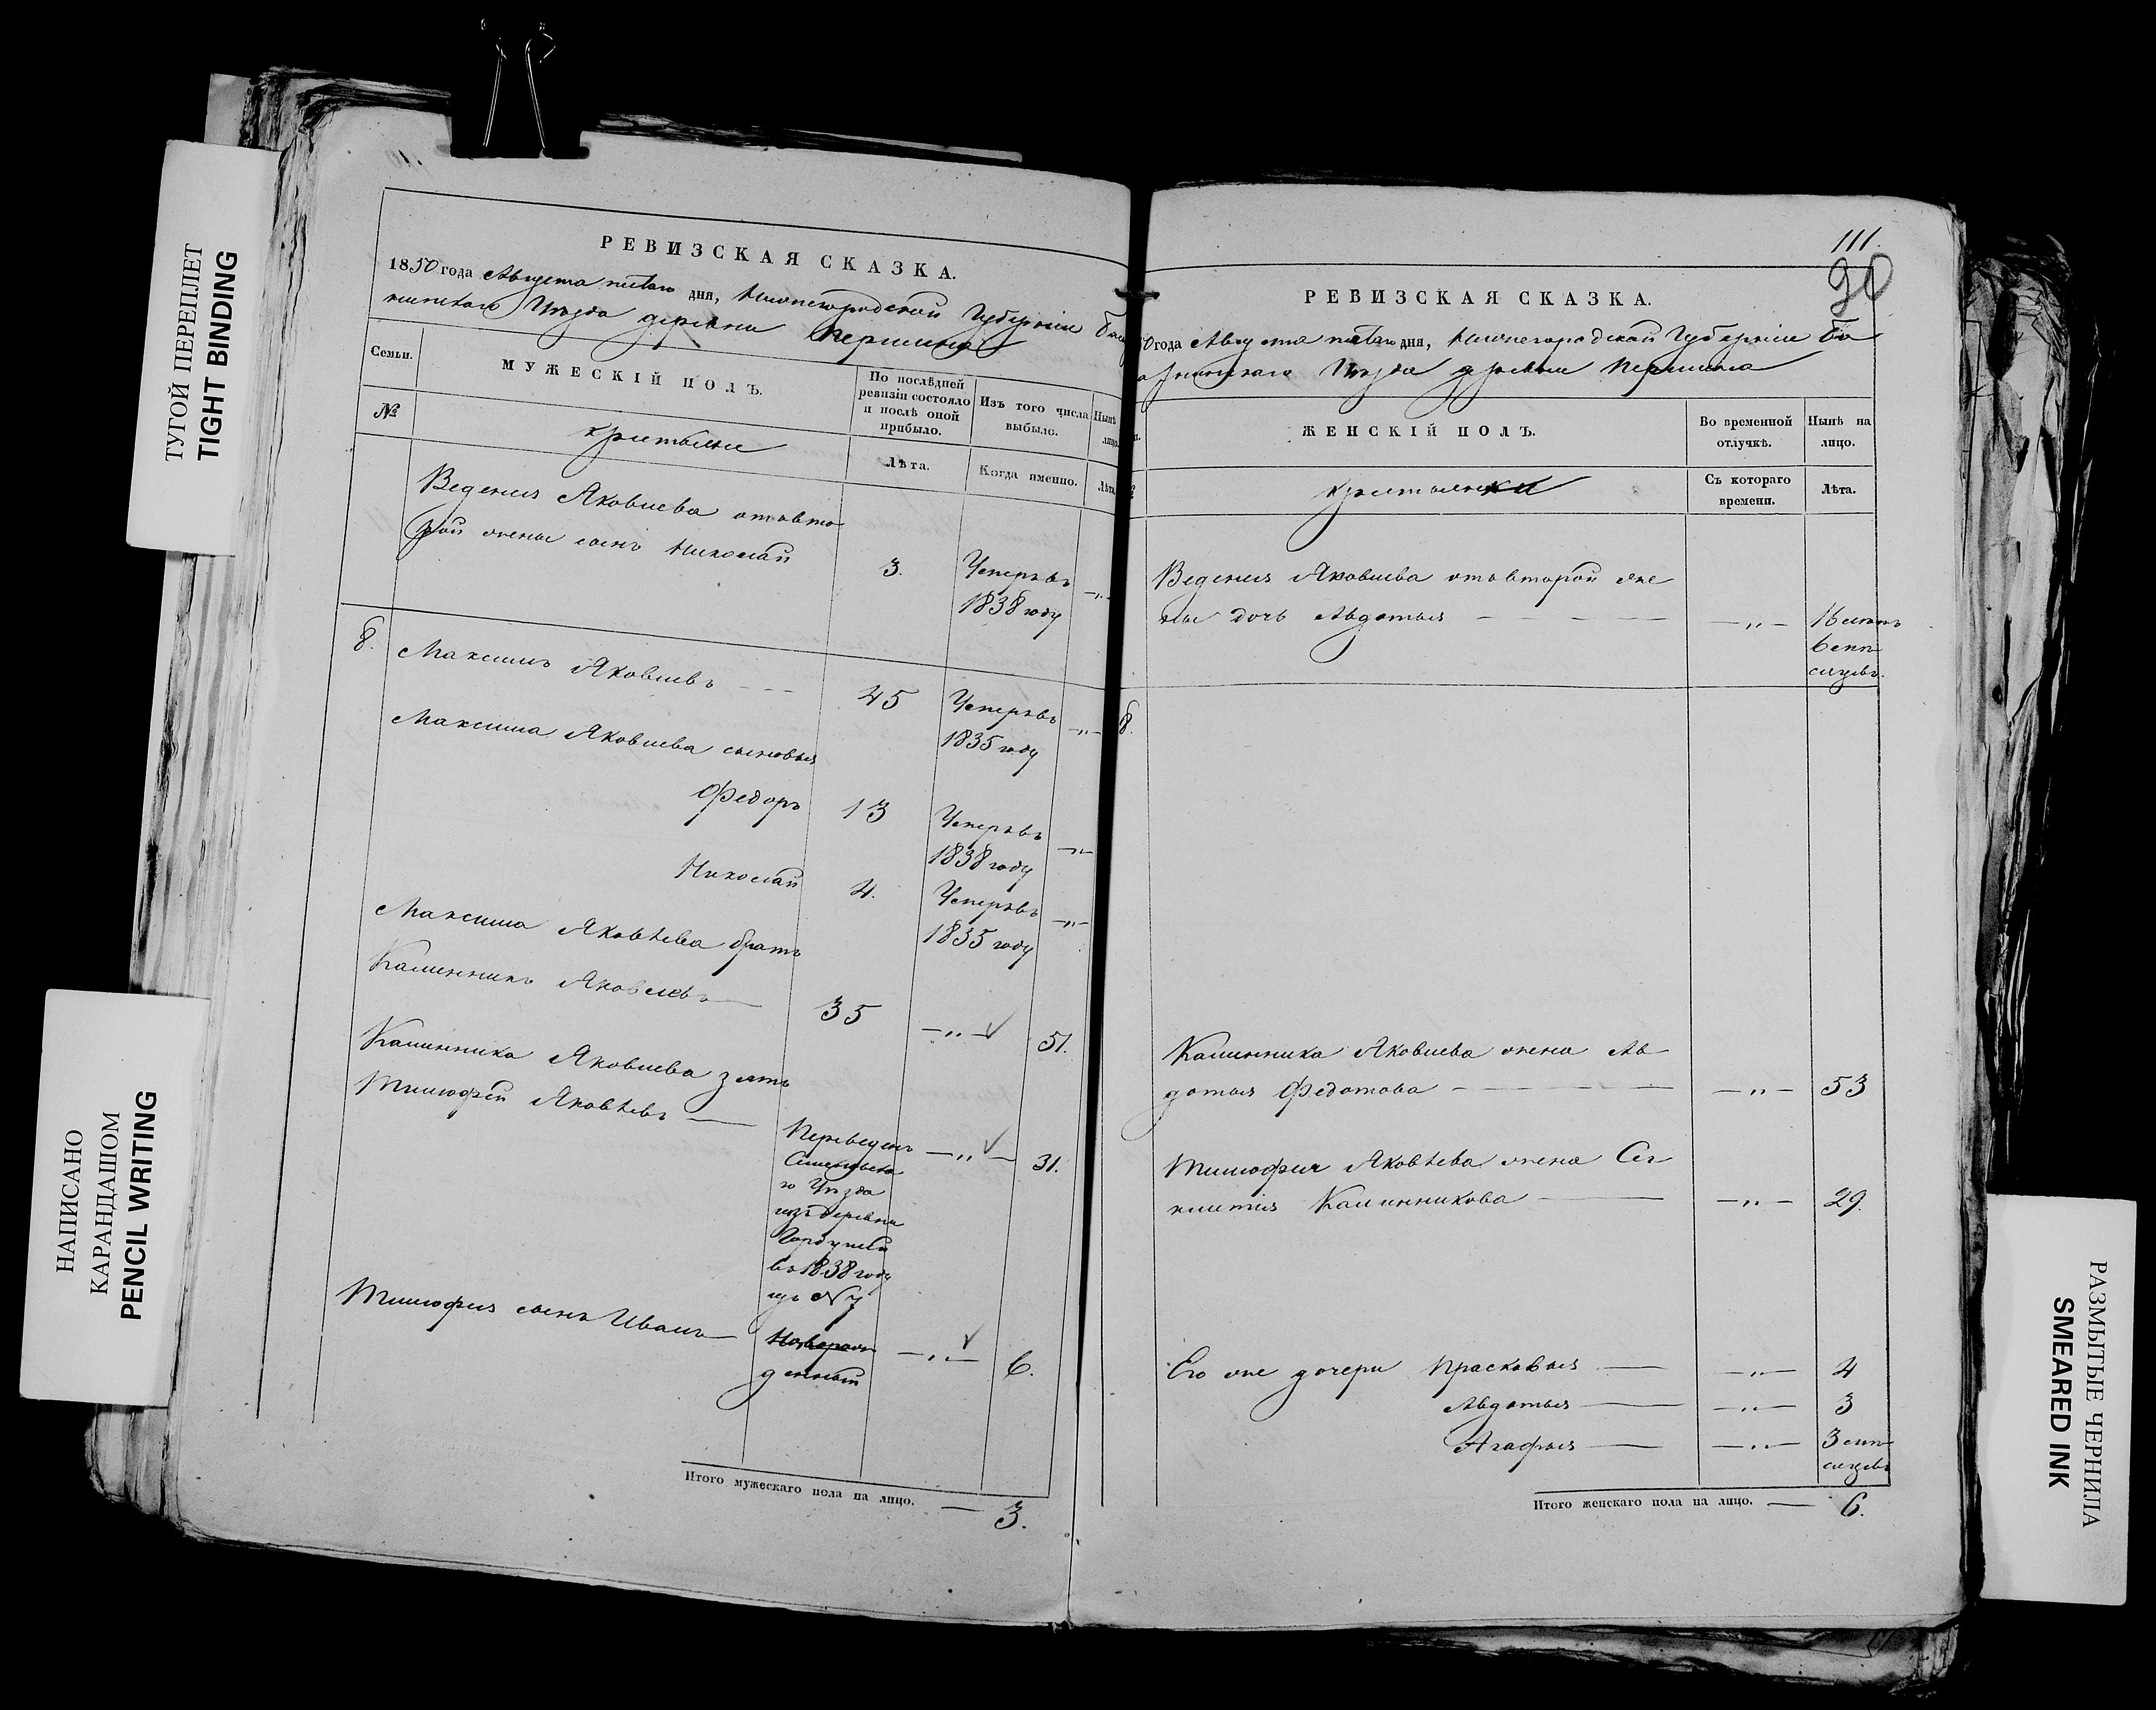 ТУГОЙ ПЕРЕПЛЕТ
TIGHT BINDING
НАПИСАНО
КАРАНДАШОМ
PENCIL WRITING
РЕВИЗСКАЯ СКАЗКА.
1850 года Августа пятаго дня, Нижегородской Губерніи
Уезда деревни Першина
Семьи.
МУЖЕСКІЙ ПОЛЪ.
По послѣдней
ревизіи состояло
и послѣ оной
прибыло.
Изъ того числа
выбыло.
Нынѣ
лицо.
№
крестьяне
Лѣта.
Когда именно.
Лѣта
Яковлева отъ вто
рой жены сынъ Николай
3.
Умеръ въ
1838 году
8.
Максимъ Яковлевъ
45
Умеръ въ
1835 году
Максима Яковлева сыновья
Федоръ
13
Умеръ въ
1838 году
Николай
4.
Умеръ въ
1835 году
Максима Яковлева братъ
Калинникъ Яковлевъ
35
51.
Калинника Яковлева зять
Тимофей Яковлевъ
Переведенъ
Семеновска
го Уезда
изъ деревни
въ 1838 году
№ 7
31.
Тимофея сынъ Иванъ
Новорож
денный
6.
Итого мужескаго пола на лицо.
3.
111.
90
РЕВИЗСКАЯ СКАЗКА.
0 года Августа пятаго дня, Нижегородской Губерніи Ба
Уезда деревни Першина
ЖЕНСКІЙ ПОЛЪ.
Во временной
отлучкѣ.
Нынѣ на
лицо.
крестьянки
Съ котораго
времени.
Лѣта.
Яковлева отъ второй же
ны дочь Авдотья
16 летъ
6 мѣ
сяцевъ.
8.
Калинника Яковлева жена Ав
дотья Федотова
53
Тимофея Яковлева жена Се
клетія Калинникова
29.
Его же дочери Прасковья
4
Авдотья
3
Агафья
3 мѣ
сяцевъ
Итого женскаго пола на лицо.
6.
РАЗМЫТЫЕ ЧЕРНИЛА
SMEARED INK